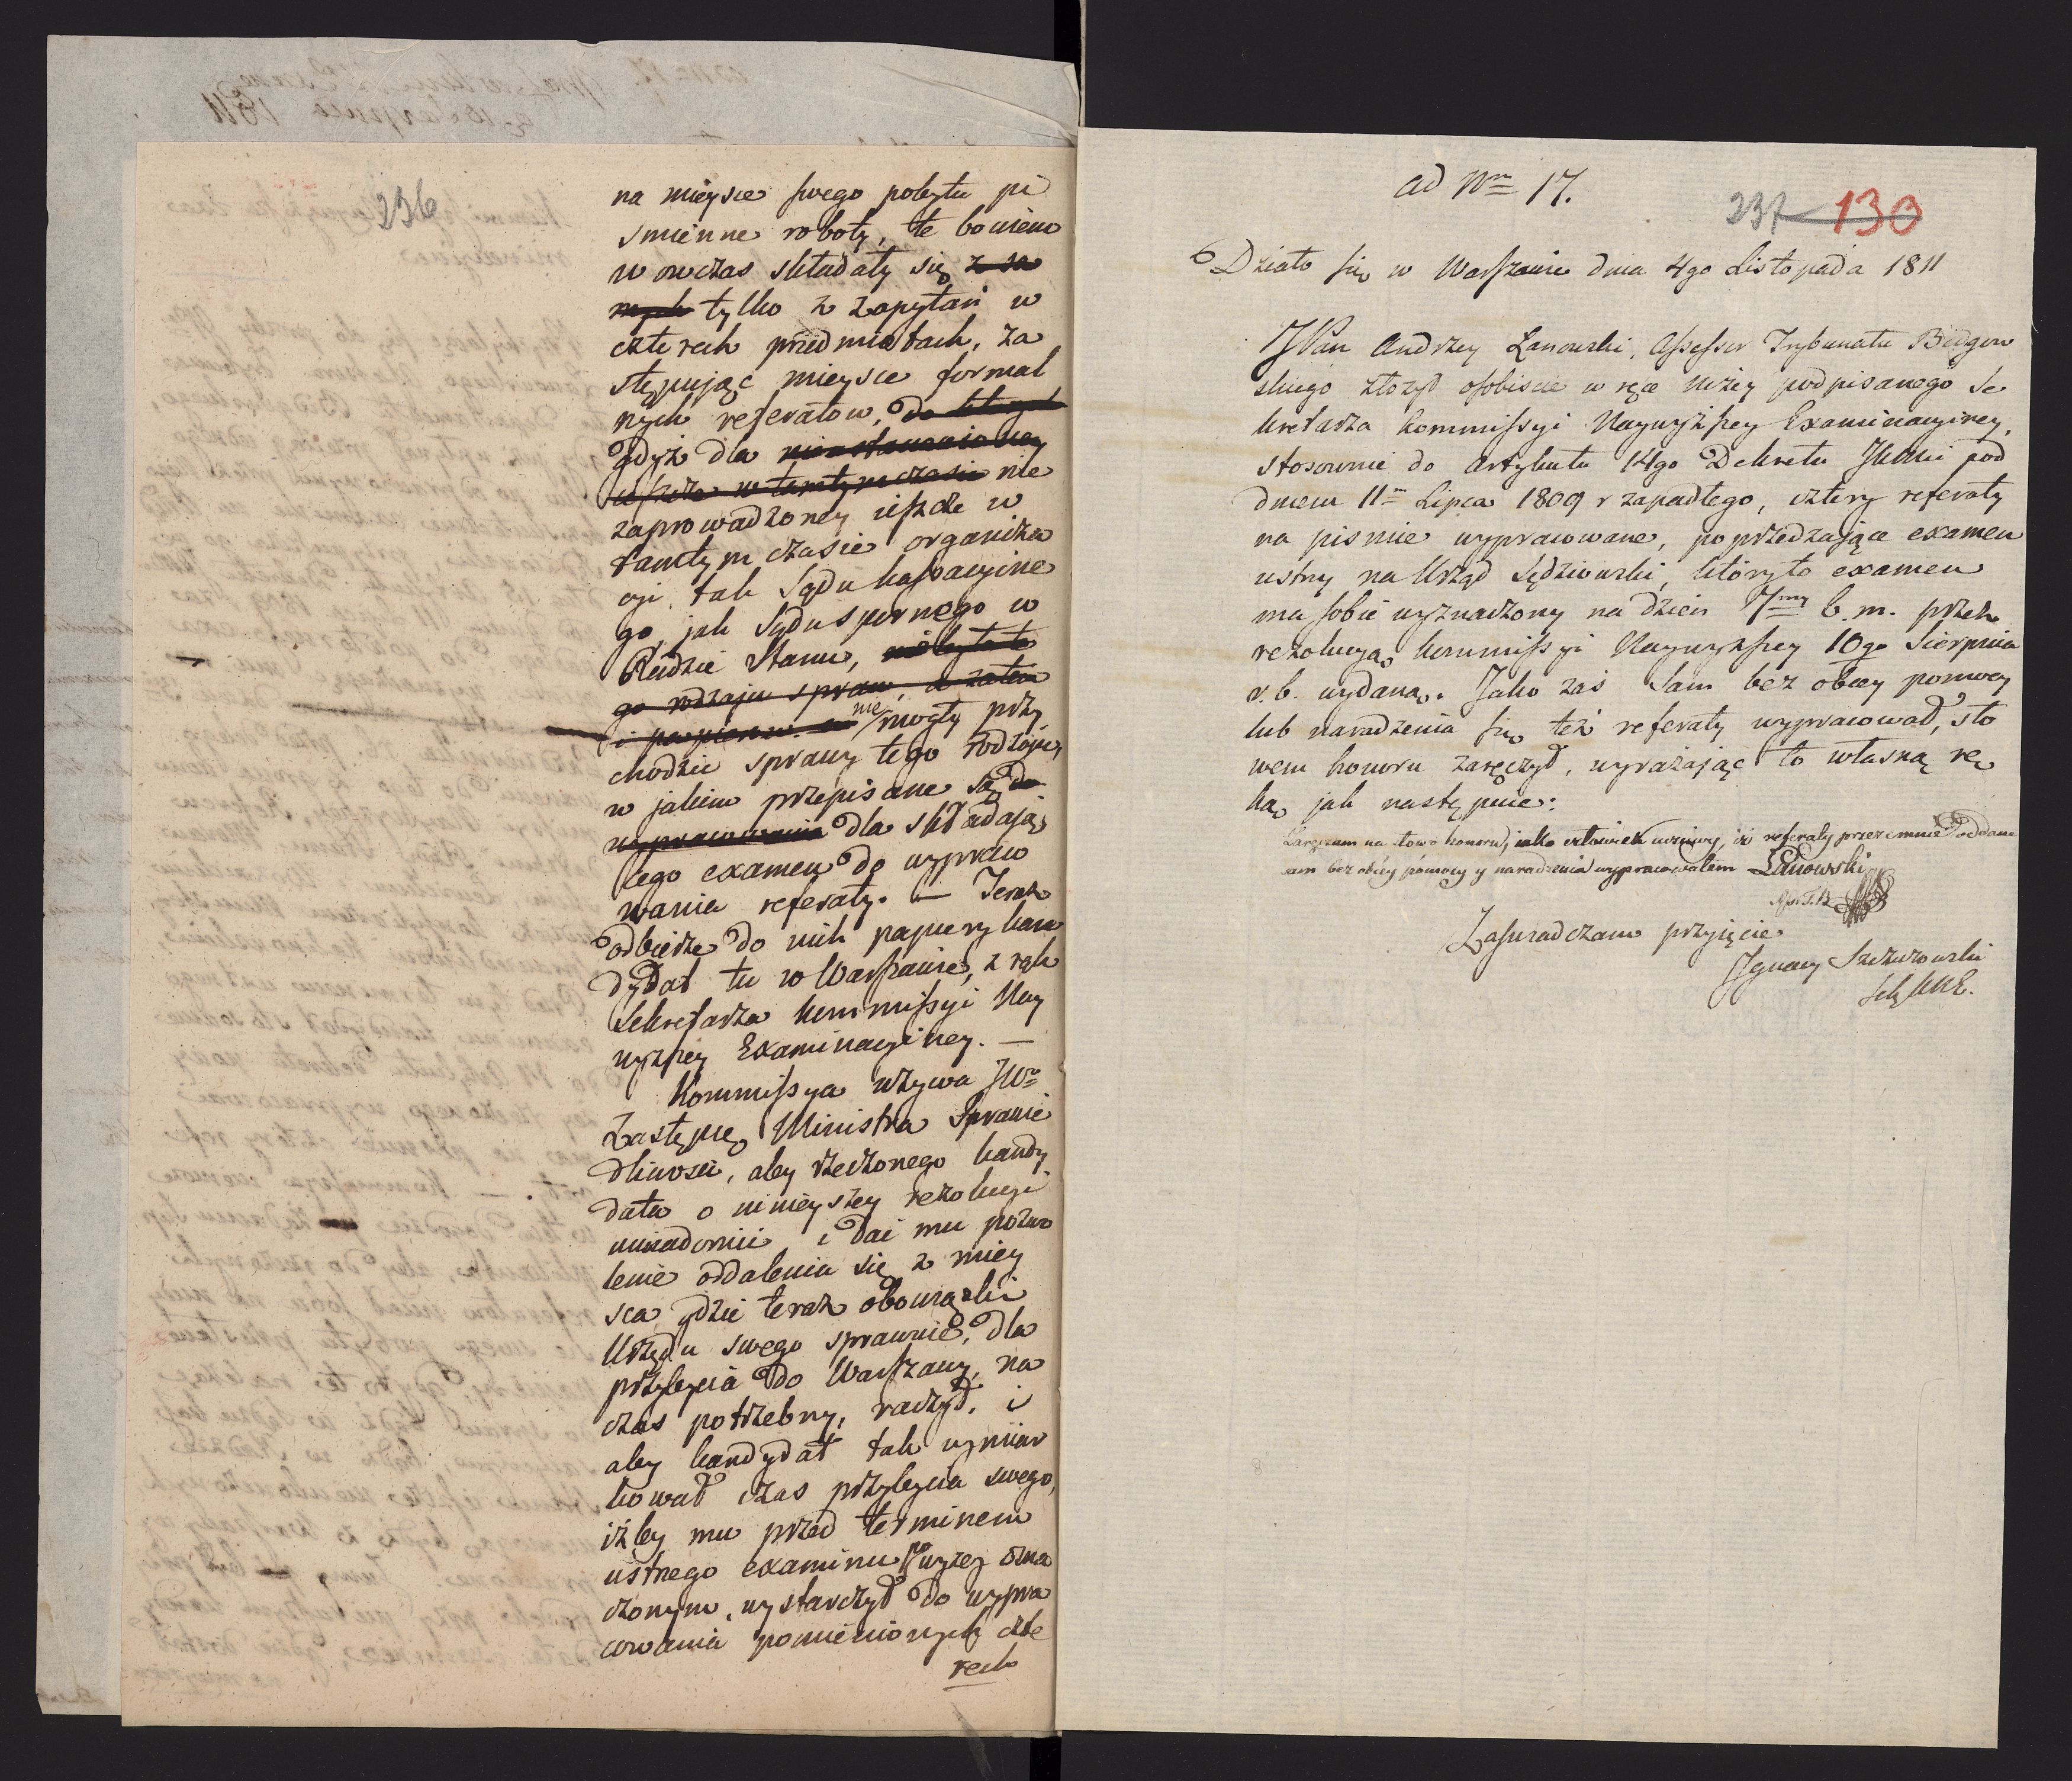 236
na mieysce swego pobytu pi
smienne roboty, te bowiem
w owczas składały się z sa
mych tylko z zapytań w
czterech przedmiotach, za
stępując mieysce formal
nych referatow, do których
gdyż dla nieustanowioney
ieszcze w tamtym czasie nie
zaprowadzoney ieszcze w
tamtym czasie organiza
cyi, tak Sądu kassacyine
go, jak Sądu spornego w
Radzie Stanu, nie były te
go rodzaju spraw, a zatem
i papierow nie mogły przy
chodzić sprawy tego rodzaju,
w jakim przepisane są do
wypracowania dla składają
cego examen do wypraco
wania referaty. — Teraz
odbierze do nich papiery kan
dydat tu w Warszawie, z rąk
Sekretarza Kommissyi Nay
wyższey Examinacyiney. —
Kommissya wzywa JWo
Zastępcę Ministra Sprawie
dliwości, aby rzeczonego kandy
data o ninieyszey rezolucyi
uwiadomić i dać mu pozwo
lenie oddalenia się z miey
sca gdzie teraz obowiązki
Urzędu swego sprawuie, dla
przybycia do Warszawy, na
czas potrzebny, raczył, i
aby kandydat tak wymiar
kował czas przybycia swego,
iżby mu przed terminem
ustnego examinu powyżey ozna
czonym, wystarczył do wypra
cowania pomienionych czte
rech
ad Nm 17.
237 130
Działo się w Warszawie dnia 4go Listopada 1811
JPan Andrzey Łanowski, Assessor Trybunału Bidgow
skiego złożył osobiście w ręce niżey podpisanego Se
kretarza Kommissyi Naywyższey Examinacyiney,
stosownie do Artykułu 14go Dekretu JKMci pod
dniem 11m Lipca 1809 r zapadłego, cztery referaty
na pismie wypracowane, poprzedzaiące examen
ustny na Urząd Sędziowski, któryto examen
ma sobie wyznaczony na dzień 7my b. m. przez
rezolucyą Kommissyi Naywyższey 10go Sierpnia
r. b. wydaną. Jako zaś sam bez obcey pomocy
lub naradzenia się też referaty wypracował, sło
wem honoru zaręczył, wyrażając to własną rę
ką jak następuie:
Zaręczam na słowo honoru, iako człowiek uczciwy, iż referaty przezemnie oddane
sam bez obcey pomocy y naradzenia wypracowałem Łanowski
As. T. B.
Zaswiadczam przyięcie
Ignacy Szczurowski
Sek KNE.